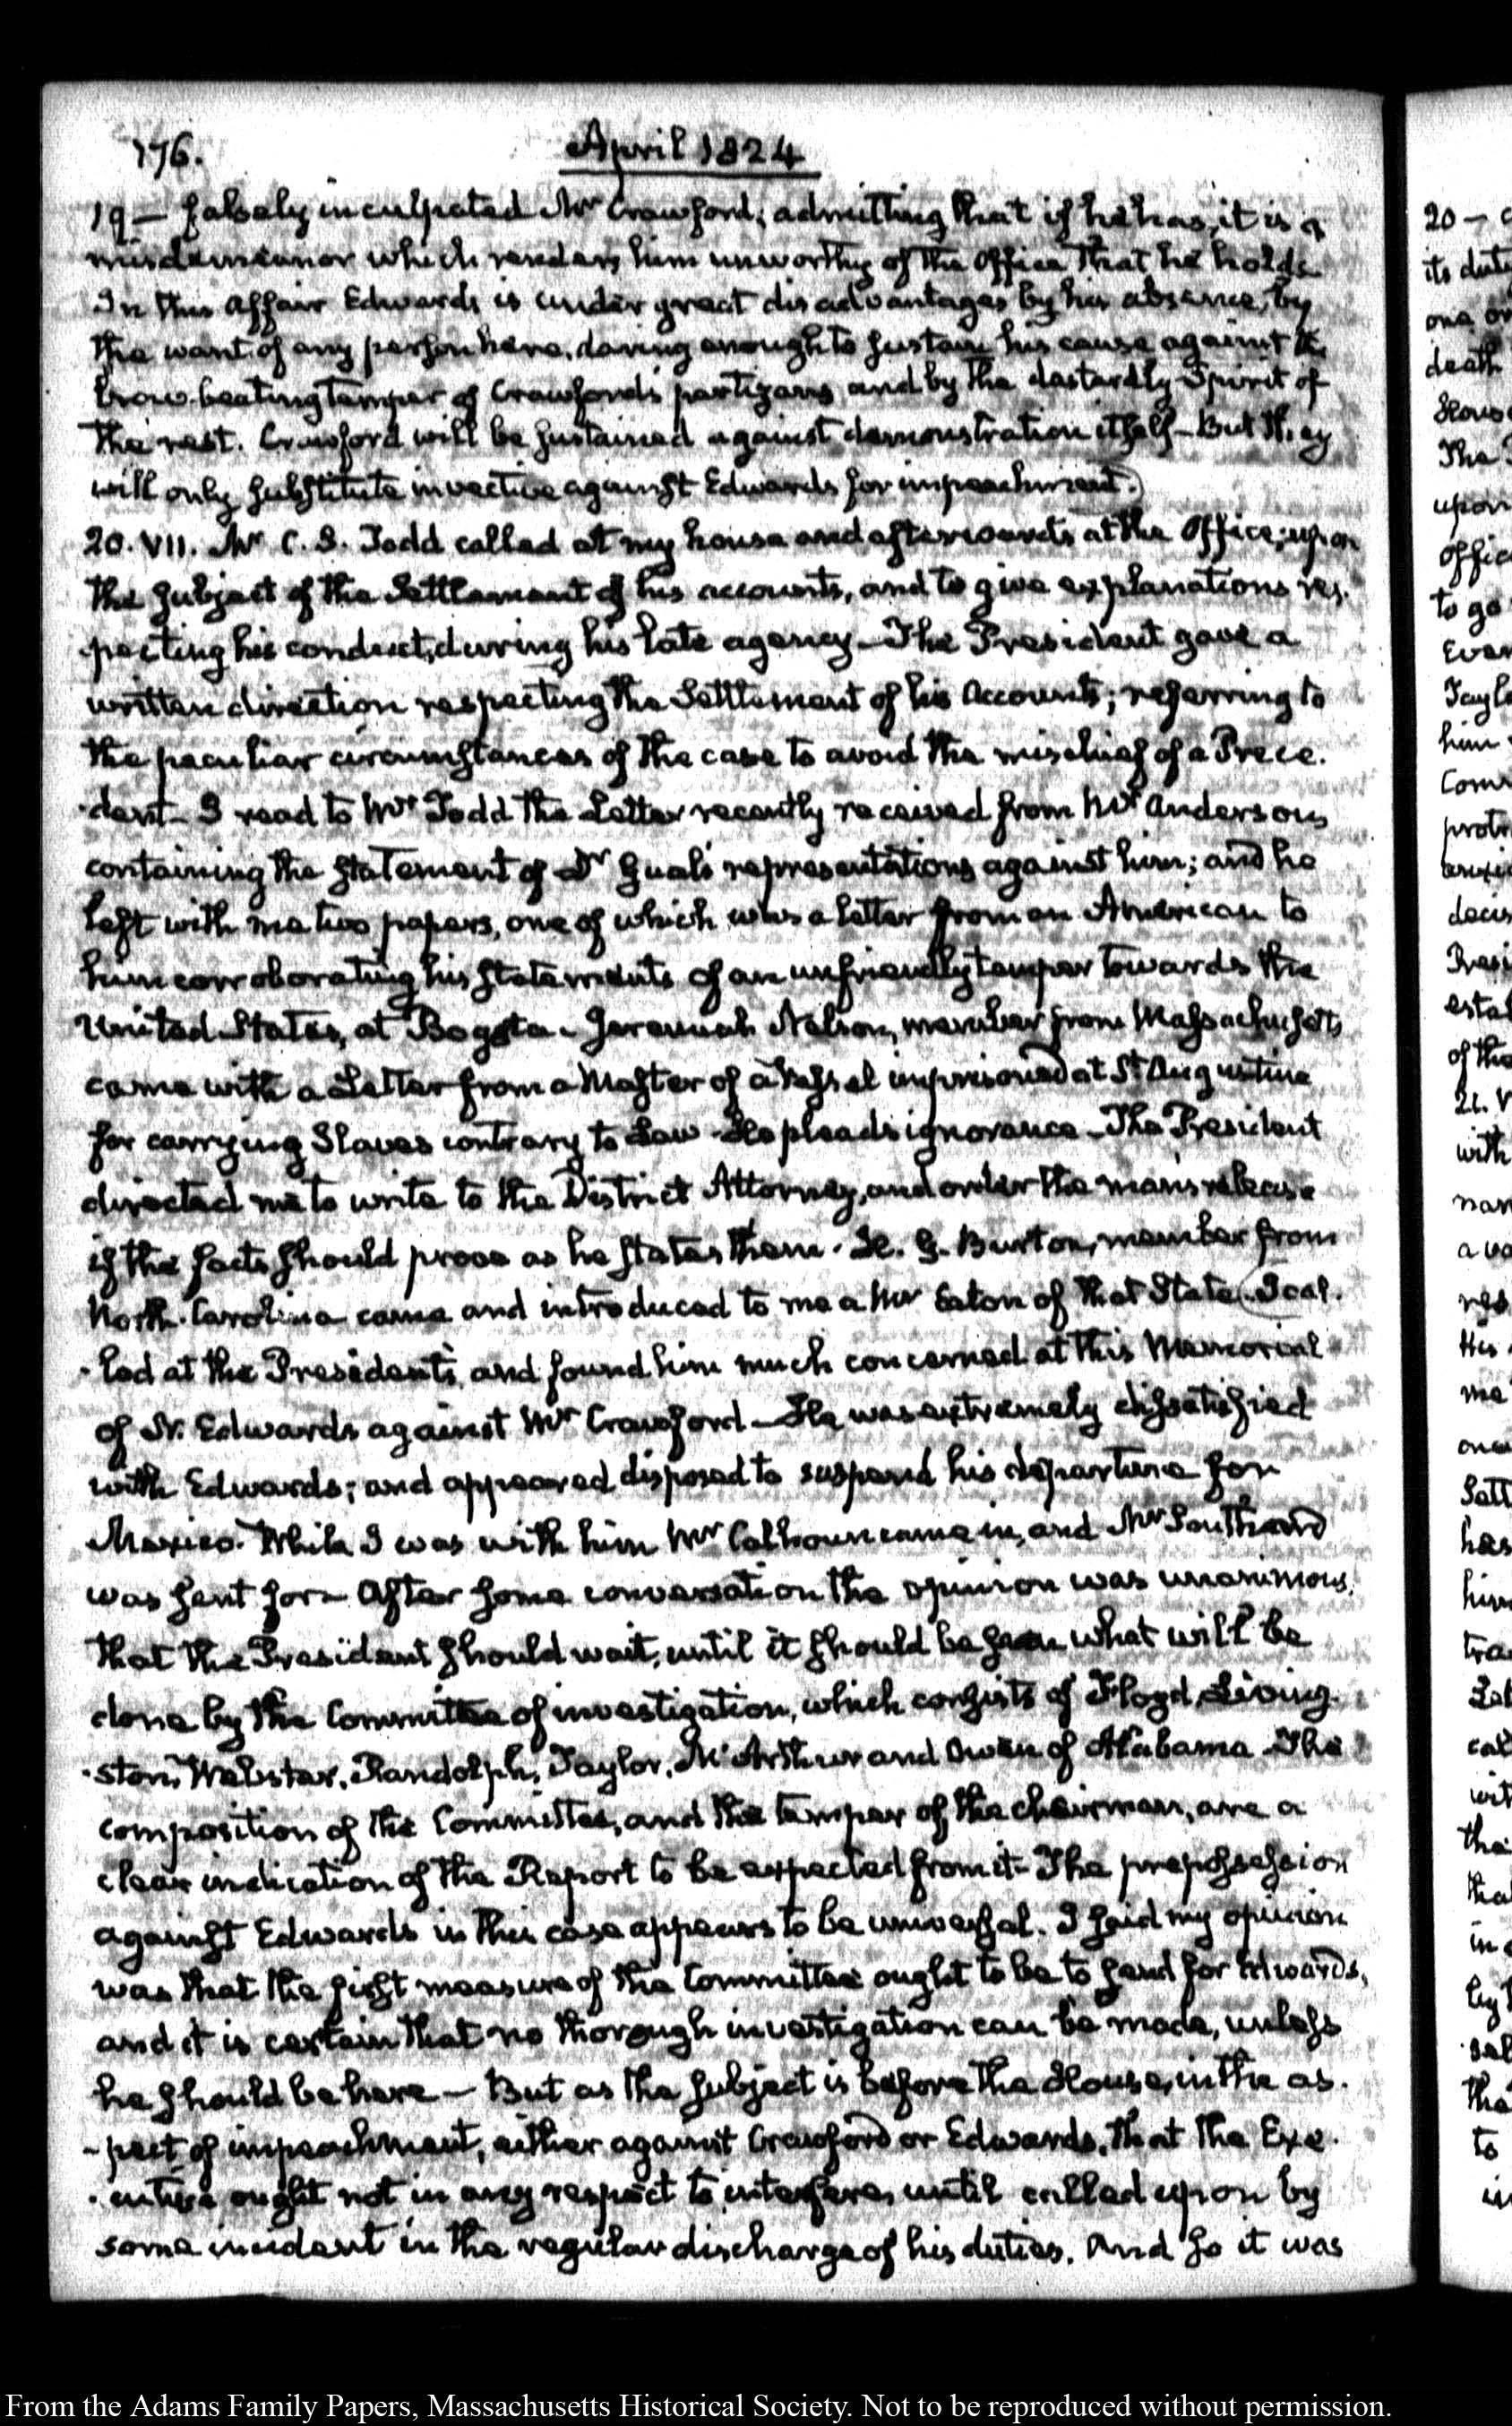 176.
April 1824
19 — falsely inculpated Mr Crawford; admitting that if he has, it is a
misdemeanor which renders him unworthy of the Office that he holds
In this affair Edwards is under great disadvantages by his absence, by
the want of any person here, daring enough to sustain his cause against the
brow-beating temper of Crawford's partizans and by the dastardly Spirit of
the rest. Crawford will be sustained against demonstration itself — But they
will only substitute invective against Edwards for impeachment.)
20. VII. Mr C. S. Todd called at my house and afterwards at the Office; upon
the subject of the Settlement of his accounts, and to give explanations res-
pecting his conduct, during his late agency — The President gave a
written direction respecting the Settlement of his Accounts; referring to
the peculiar circumstances of the case to avoid the mischief of a Prece-
-dent — I read to Mr Todd the Letter recently received from Mr Anderson,
containing the statement of Dr Gual's representations against him; and he
left with me two papers, one of which was a letter from an American to
him corroborating his statements of an unfriendly temper towards the
United States, at Bogota — Jeremiah Nelson, member from Massachusetts,
came with a Letter from a Master of a vessel imprisoned at St Augustine
for carrying Slaves contrary to Law — He pleads ignorance — The President
directed me to write to the District Attorney, and order the man's release
if the facts should prove as he states them. H. G. Burton, member from
North-Carolina came and introduced to me a Mr Eaton of that State (I cal-
-led at the President's, and found him much concerned at this Memorial
of N. Edwards against Mr Crawford — He was extremely dissatisfied
with Edwards; and appeared disposed to suspend his departure for
Mexico. While I was with him Mr Calhoun came in, and Mr Southard
was sent for — After some conversation the opinion was unanimous,
that the President should wait, until it should be seen what will be
done by the Committee of investigation, which consists of Floyd, Living-
-ston, Webster, Randolph, Taylor, McArthur and Owen of Alabama — The
composition of the Committee, and the temper of the chairman, are a
clear indication of the Report to be expected from it — The prepossession
against Edwards in this case appears to be universal. I said my opinion
was that the first measure of the Committee ought to be to send for Edwards,
and it is certain that no thorough investigation can be made, unless
he should be here — But as the subject is before the House, in the as-
-pect of impeachment, either against Crawford or Edwards, that the Exe-
-cutive ought not in any respect to interfere, until called upon by
some incident in the regular discharge of his duties. And so it was
20 —
its
one or
death
upon
to go
him
of the
with
His
me
has
the
in
to
From the Adams Family Papers, Massachusetts Historical Society. Not to be reproduced without permission.